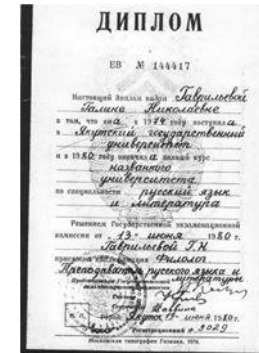 ДИПЛОМ
ЕВ № 144417
Настоящий диплом выдан Гаврильевой
Галине Николаевне
в том, что она в 1974 году поступила
в Якутский государственный
университет
и в 1980 году окончила полный курс
названного
университета
по специальности русский язык
и литература
Решением Государственной экзаменационной
комиссии от 13 июня 1980 г.
Гаврильевой Г.Н
присвоена квалификация Филолог
Преподаватель русского языка и
литературы
Председатель Государственной
экзаменационной
Ректор
Город Якутск 19 июня 1980 г.
Регистрационный № 3029
Московская типография Гознака. 1976.